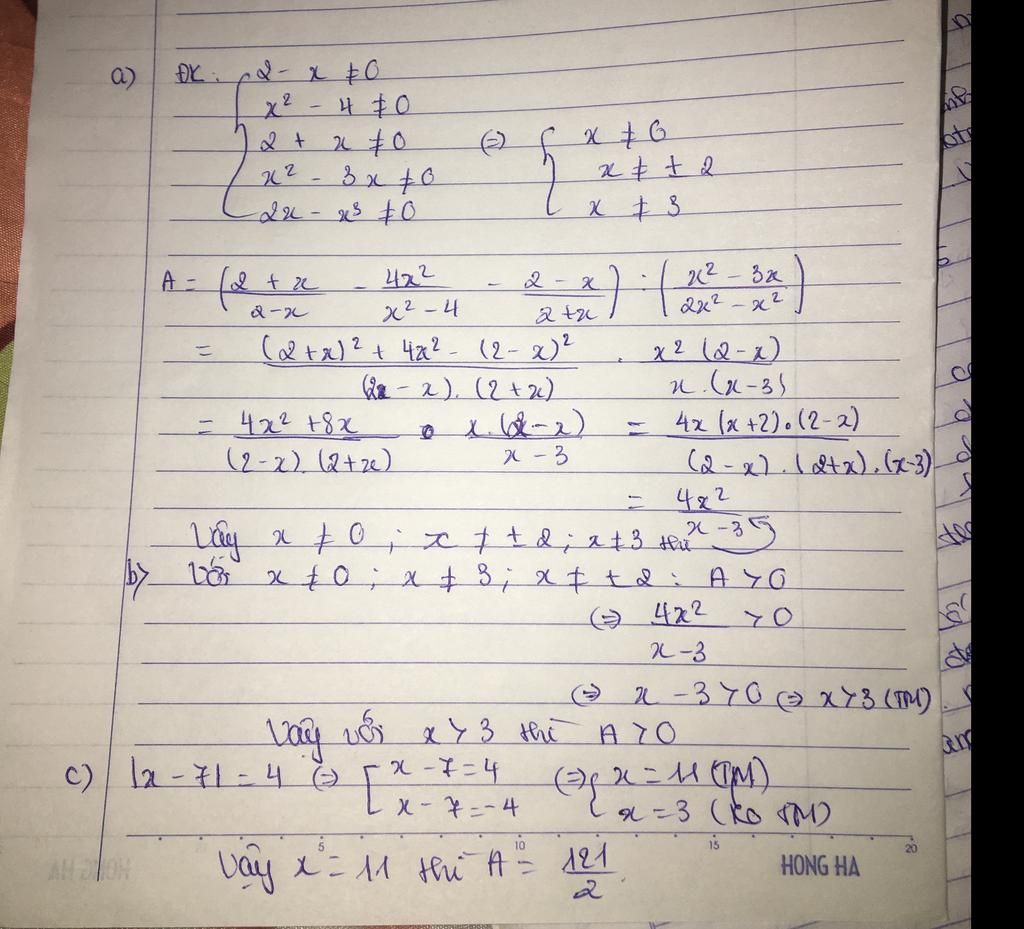 a) ĐK: 2 - x ≠ 0
x² - 4 ≠ 0
2 + x ≠ 0 (=) x ≠ 0
x² - 3x ≠ 0 x ≠ ± 2
2x - x³ ≠ 0 x ≠ 3
A = ( (2 + x)/(2-x) - 4x²/(x² - 4) - (2 - x)/(2+x) ) : ( (x² - 3x)/(2x² - x²) )
= ((2+x)² + 4x² - (2-x)²)/((2 - x).(2+x)) . (x² (2-x))/(x.(x-3))
= (4x² + 8x)/((2-x).(2+x)) . (x.(2-x))/(x-3) = (4x(x+2).(2-x))/((2-x).(2+x).(x-3))
= 4x²/(x-3)
Vậy x ≠ 0 ; x ≠ ± 2 ; x ≠ 3 thì
b) Với x ≠ 0 ; x ≠ 3 ; x ≠ ± 2 : A > 0
(=) 4x²/(x-3) > 0
(=) x - 3 > 0 (=) x > 3 (TM).
Vậy với x > 3 thì A > 0
c) |x - 7| = 4 (=) [ x - 7 = 4 (=) { x = 11 (TM)
x - 7 = -4 x = 3 (Ko TM)
5 10 15 20
Vậy x = 11 thì A = 121/2
HONG HA